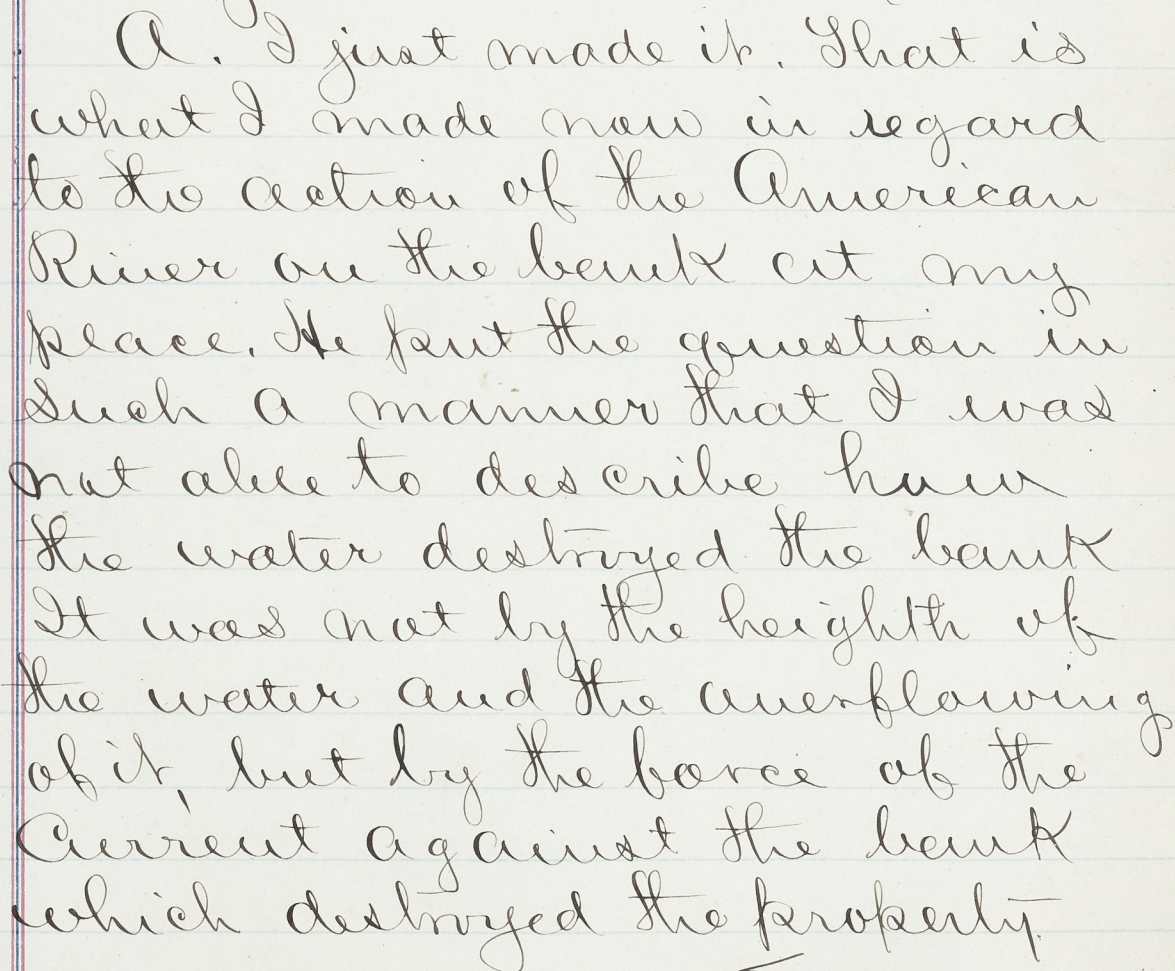 A. I just made it. That is
what I made now in regard
to the action of the American
River on the bank at my
place. He put the question in
such a manner that I was
not able to describe how
the water destroyed the bank
It was not by the heighth of
the water and the overflowing
of it, but by the force of the
Current against the bank
which destroyed the property.